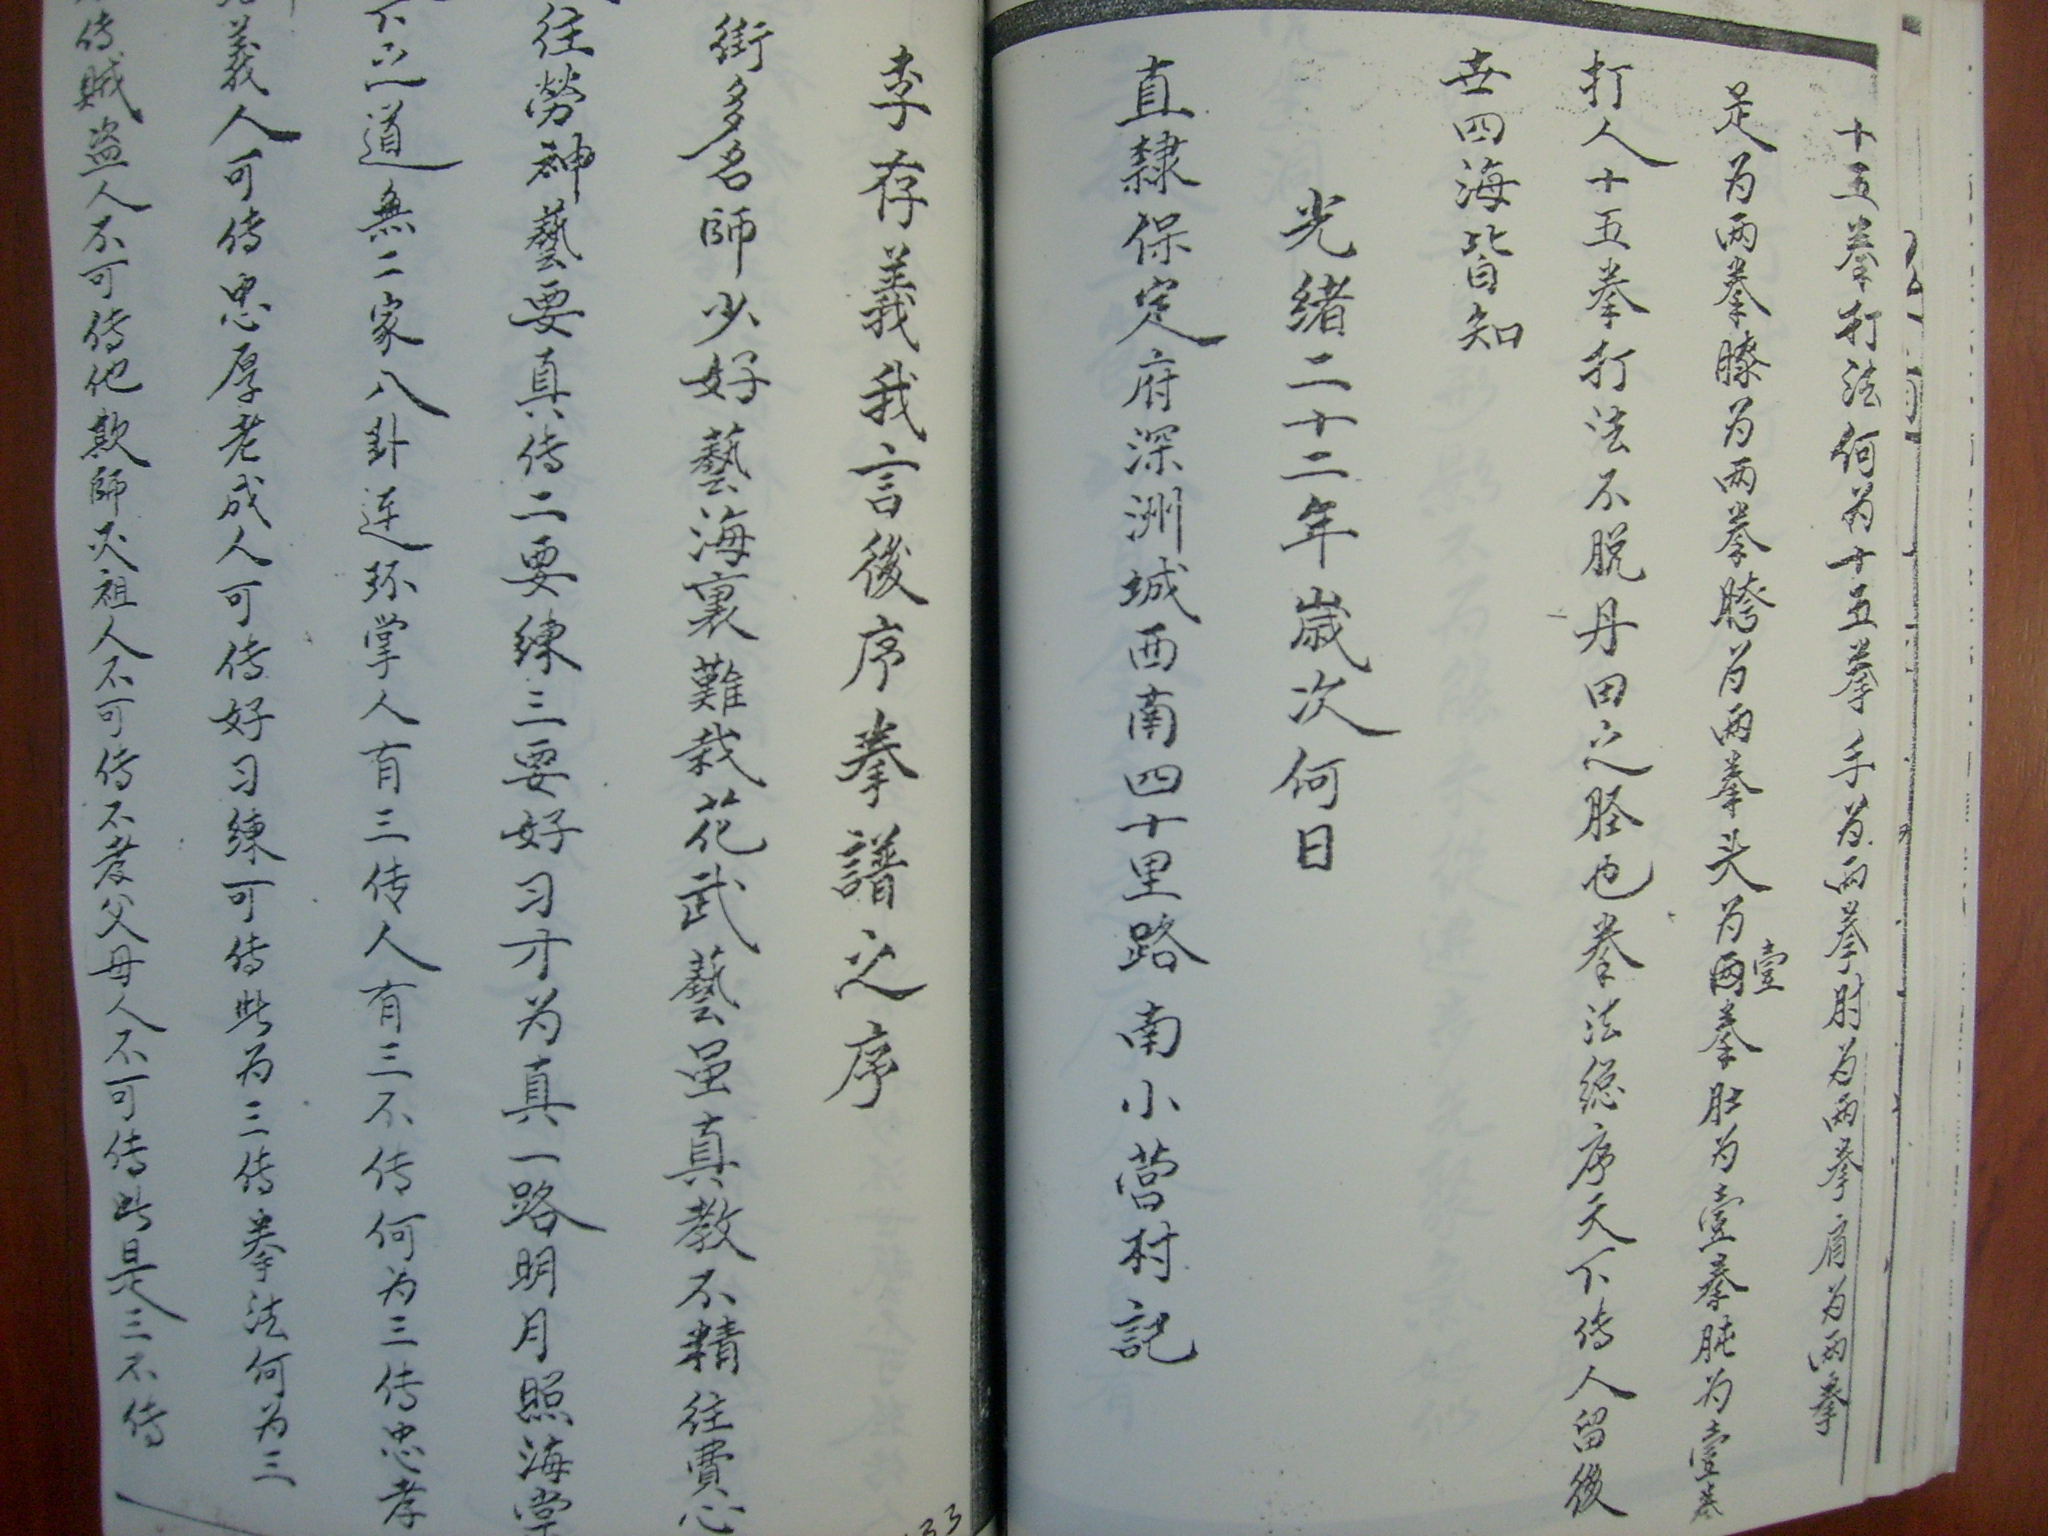 十五拳打法何为十五拳手为两拳肘为两拳肩为两拳
足为两拳膝为两拳胯为两拳头为两壹拳肚为壹拳肫为壹拳
打人十五拳打法不脱丹田之胫也拳法総序天下传人留後
世四海皆知
光绪二十二年歲次何日
直隸保定府深洲城西南四十里路南小营村記
李存義我言後序拳譜之序
街多名師少好藝海裏難栽花武藝虽真教不精往費心
往勞神藝要真传二要练三要好习才为真一路明月照海棠
下之道無二家八卦连环掌人有三传人有三不传何为三传忠孝
義人可传忠厚老成人可传好习练可传此为三传拳法何为三
传贼盗人不可传他欺師灭祖人不可传不孝父母人不可传此是三不传
133